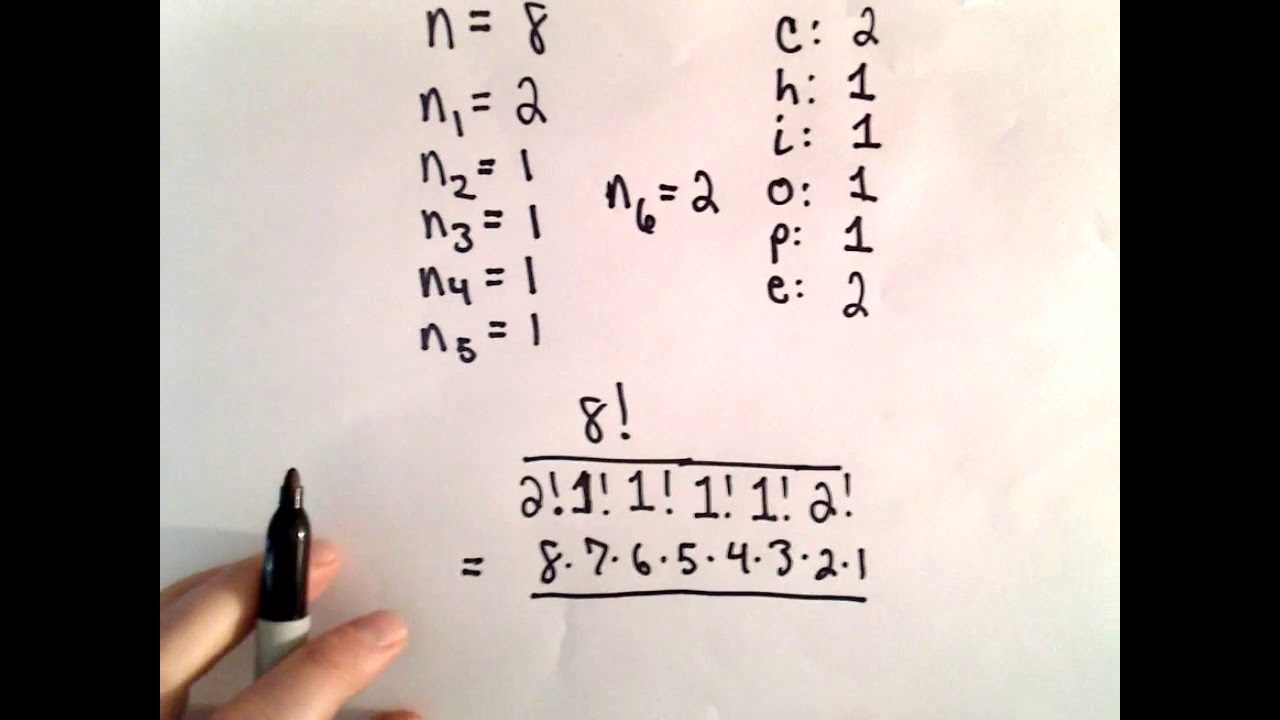 n = 8
n₁ = 2
n₂ = 1
n₃ = 1
n₄ = 1
n₅ = 1
n₆ = 2
c: 2
h: 1
i: 1
o: 1
p: 1
e: 2
8!
2! 1! 1! 1! 1! 2!
= 8·7·6·5·4·3·2·1